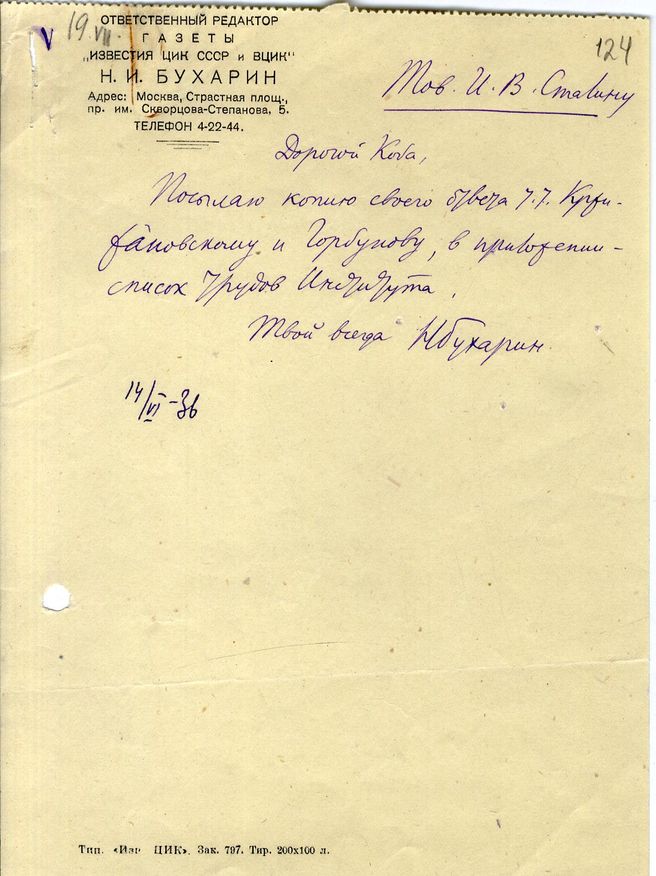 19.VII.
V
124
ОТВЕТСТВЕННЫЙ РЕДАКТОР
ГАЗЕТЫ
„ИЗВЕСТИЯ ЦИК СССР и ВЦИК"
Н. И. БУХАРИН
Адрес: Москва, Страстная площ.,
пр. им. Скворцова-Степанова, 5.
ТЕЛЕФОН 4-22-44.
Тов. И. В. Сталину
Дорогой Коба,
Посылаю копию своего ответа т.т. Кржи-
жановскому и Горбунову, в приложении –
список трудов Института.
Твой всегда Н Бухарин.
14/VI-36
Тип. «Изв ЦИК». Зак. 797. Тир. 200х100 л.